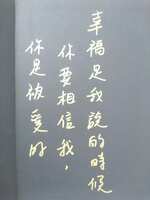 幸福是我說的時候
你要相信我，
你是被愛的